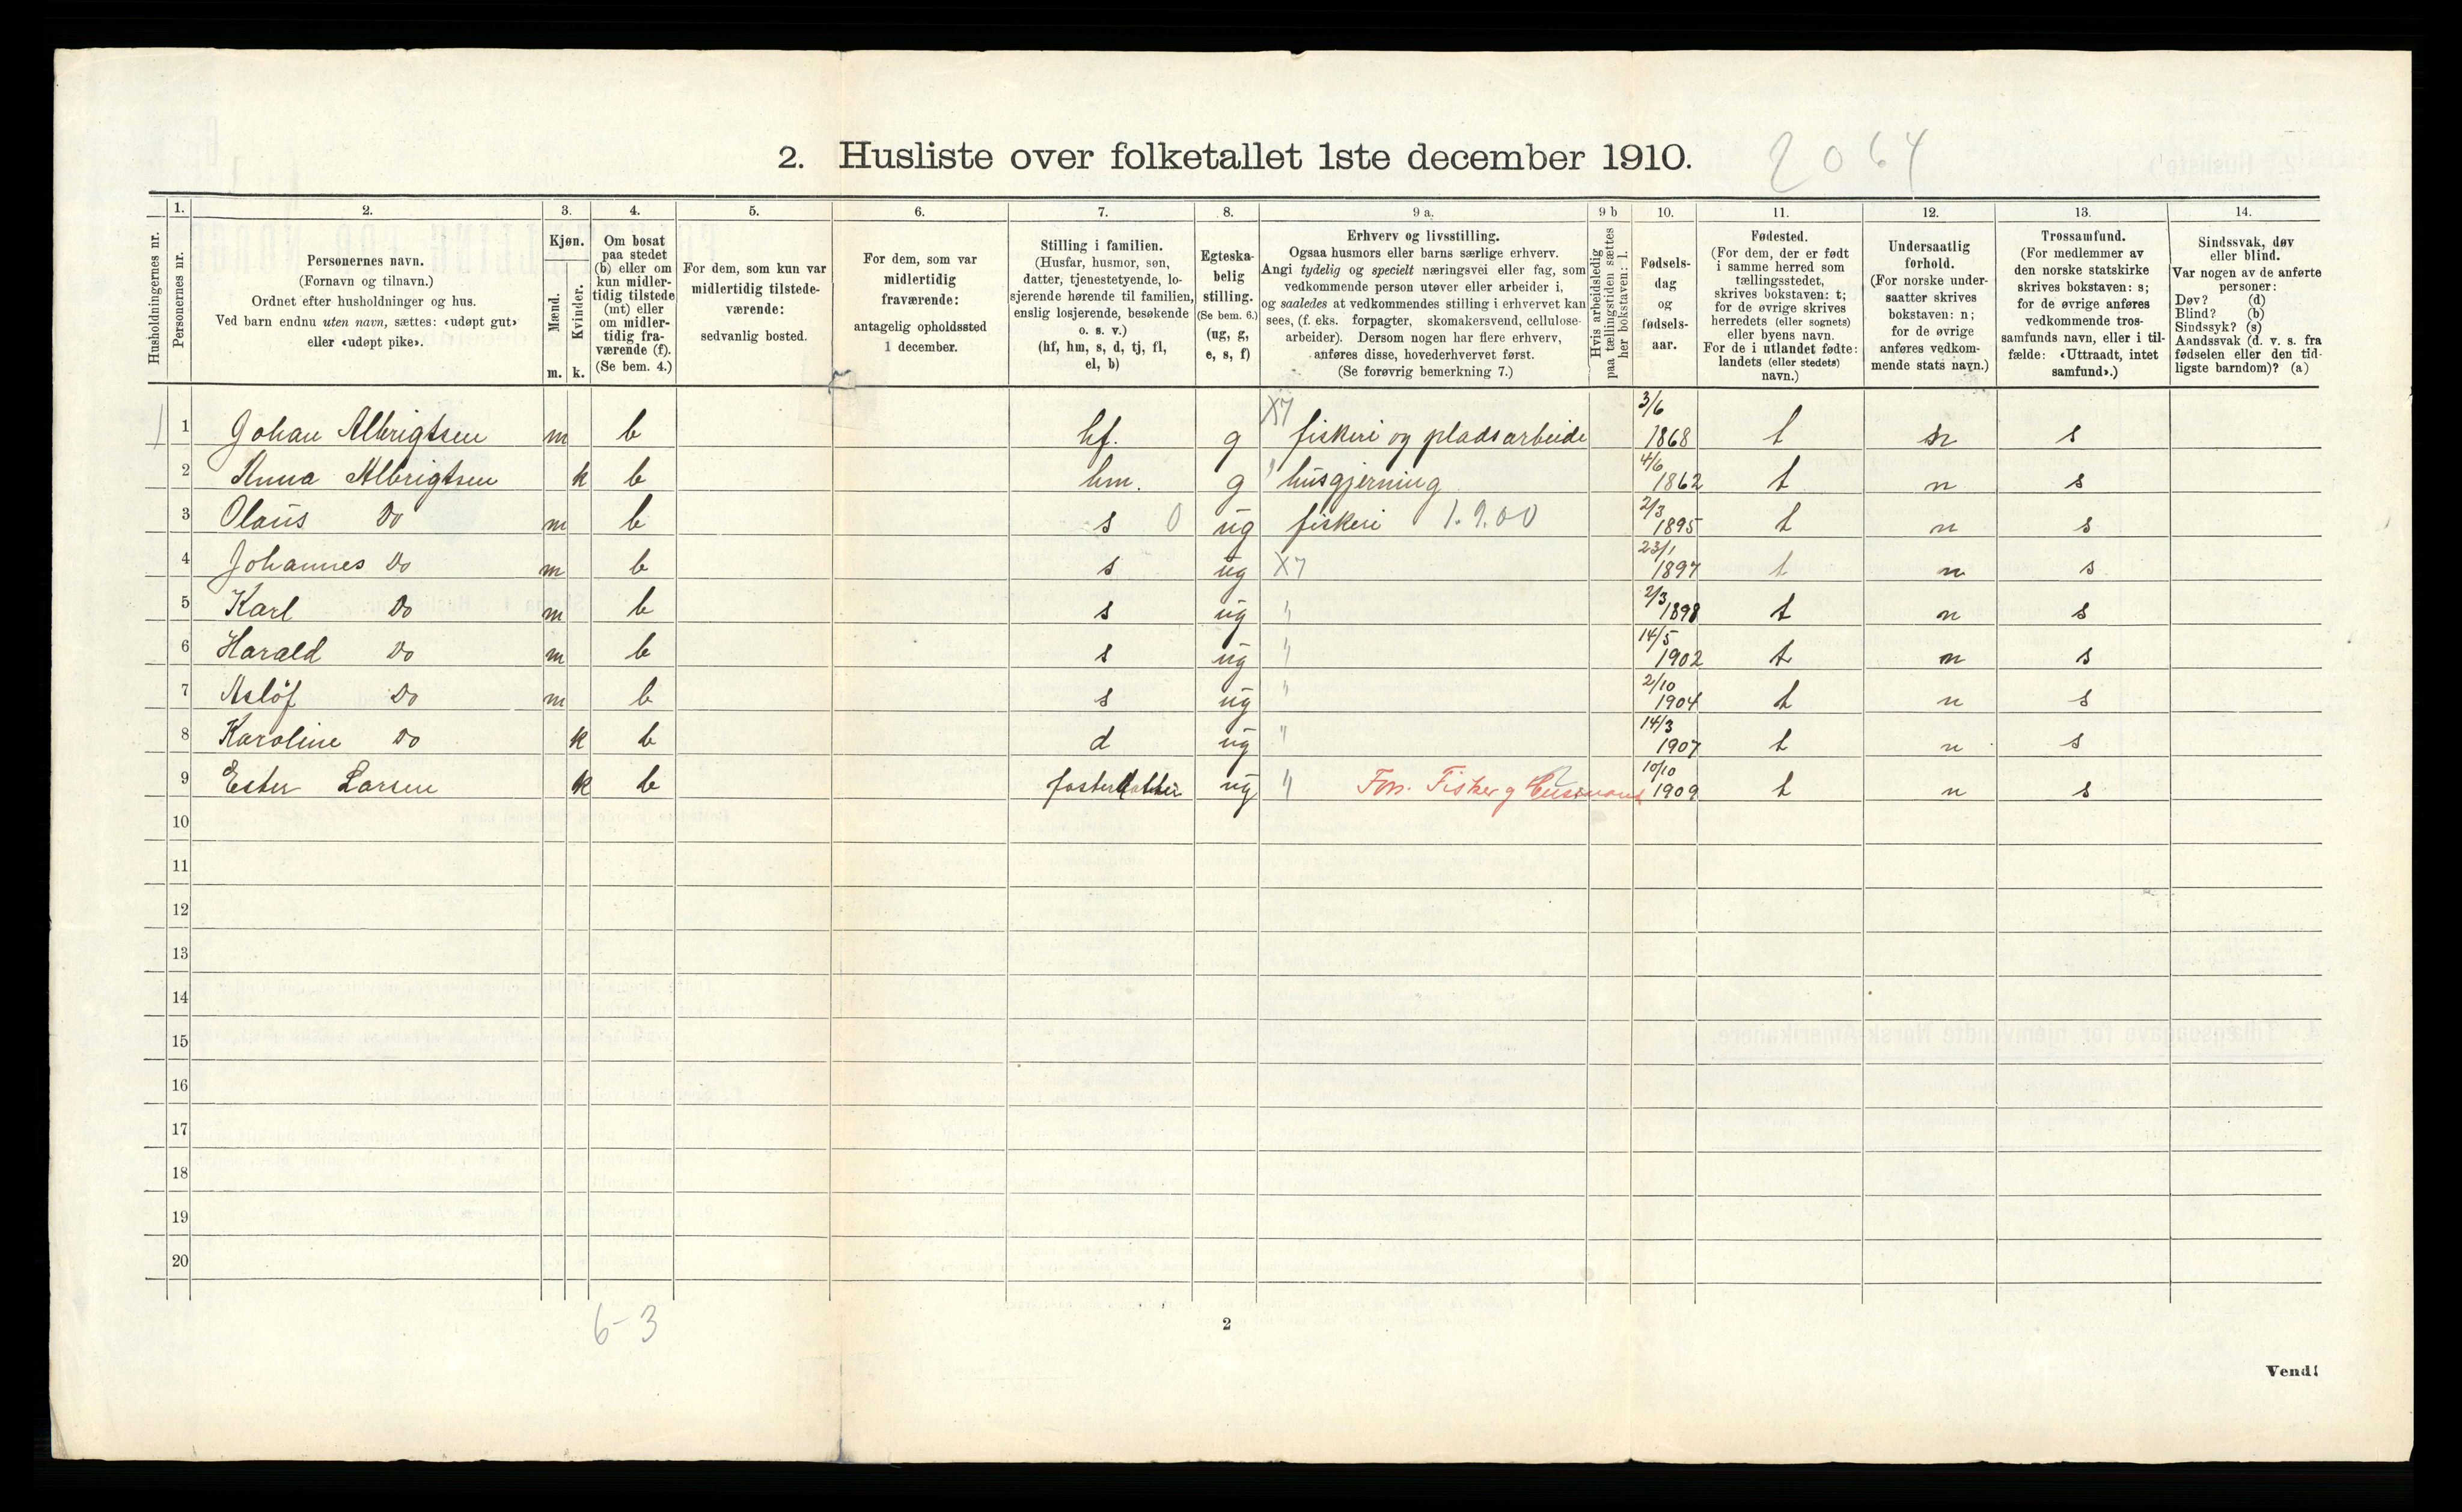 2. Husliste over folketallet 1ste december 1910.
2064
Husholdningernes nr.
1.
Personernes nr.
2.
Personernes navn.
(Fornavn og tilnavn.)
Ordnet efter husholdninger og hus.
Ved barn endnu uten navn, sættes: «udøpt gut»
eller «udøpt pike».
3.
Kjøn.
Mænd.
Kvinder.
m. k.
4.
Om bosat
paa stedet
(b) eller om
kun midler-
tidig tilstede
(mt) eller
om midler-
tidig fra-
værende (f).
(Se bem. 4.)
5.
For dem, som kun var
midlertidig tilstede-
værende:
sedvanlig bosted.
6.
For dem, som var
midlertidig
fraværende:
antagelig opholdssted
1 december.
7.
Stilling i familien.
(Husfar, husmor, søn,
datter, tjenestetyende, lo-
sjerende hørende til familien,
enslig losjerende, besøkende
o. s. v.)
(hf, hm, s, d, tj, fl,
el, b)
8.
Egteska-
belig
stilling.
(Se bem. 6.)
(ug, g,
e, s, f)
9 a.
Erhverv og livsstilling.
Ogsaa husmors eller barns særlige erhverv.
Angi tydelig og specielt næringsvei eller fag, som
vedkommende person utøver eller arbeider i,
og saaledes at vedkommendes stilling i erhvervet kan
sees, (f. eks. forpagter, skomakersvend, cellulose-
arbeider). Dersom nogen har flere erhverv,
anføres disse, hovederhvervet først.
(Se forøvrig bemerkning 7.)
9 b
Hvis arbeidsledig
paa tællingstiden sættes
her bokstaven: l.
10.
Fødsels-
dag
og
fødsels-
aar.
11.
Fødested.
(For dem, der er født
i samme herred som
tællingsstedet,
skrives bokstaven: t;
for de øvrige skrives
herredets (eller sognets)
eller byens navn.
For de i utlandet fødte:
landets (eller stedets)
navn.)
12.
Undersaatlig
forhold.
(For norske under-
saatter skrives
bokstaven: n;
for de øvrige
anføres vedkom-
mende stats navn.)
13.
Trossamfund.
(For medlemmer av
den norske statskirke
skrives bokstaven: s;
for de øvrige anføres
vedkommende tros-
samfunds navn, eller i til-
fælde: «Uttraadt, intet
samfund».)
14.
Sindssvak, døv
eller blind.
Var nogen av de anførte
personer:
Døv? (d)
Blind? (b)
Sindssyk? (s)
Aandssvak (d. v. s. fra
fødselen eller den tid-
ligste barndom)? (a)
1 1 Johan Albrigtsen m b hf. g X7 fiskeri og pladsarbeide 3/6 1868 t n s
2 Anna Albrigtsen k b hm. g " husgjerning 4/6 1862 t n s
3 Olaüs Do m b s 0 ug fiskeri 1.9.00 2/3 1895 t n s
4 Johannes Do m b s ug X7 23/1 1897 t n s
5 Karl Do m b s ug " 2/3 1898 t n s
6 Harald Do m b s ug " 14/5 1902 t n s
7 Asløf Do m b s ug " 2/10 1904 t n s
8 Karoline Do k b d ug " 14/3 1907 t n s
9 Ester Larsen k b fosterdatter ug " Fors. Fisker g Husmand 10/10 1909 t n s
10
11
12
13
14
15
16
17
18
19
20
6-3
2
Vend!